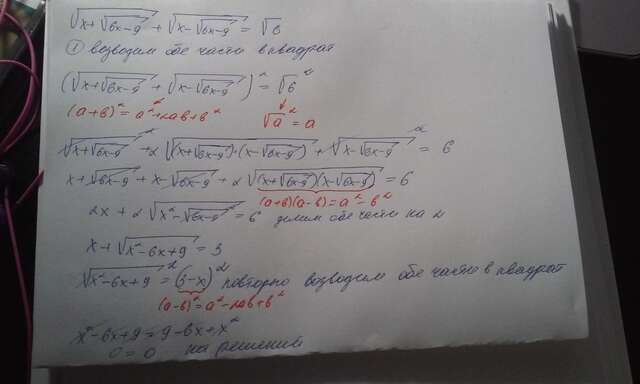 √(x+√(6x-9)) + √(x-√(6x-9)) = √6
① возводим обе части в квадрат
(√(x+√(6x-9)) + √(x-√(6x-9)))² = √6²
(a+b)² = a²+2ab+b² √a² = a
√(x+√(6x-9))² + 2√((x+√(6x-9))·(x-√(6x-9))) + √(x-√(6x-9))² = 6
x+√(6x-9) + x-√(6x-9) + 2√((x+√(6x-9))(x-√(6x-9))) = 6
(a+b)(a-b) = a²-b²
2x + 2√(x²-√(6x-9)²) = 6 делим обе части на 2
x+√(x²-6x+9) = 3
√(x²-6x+9)² = (3-x)² повторно возводим обе части в квадрат
(a-b)² = a²-2ab+b²
x²-6x+9 = 9-6x+x²
0 = 0 решений